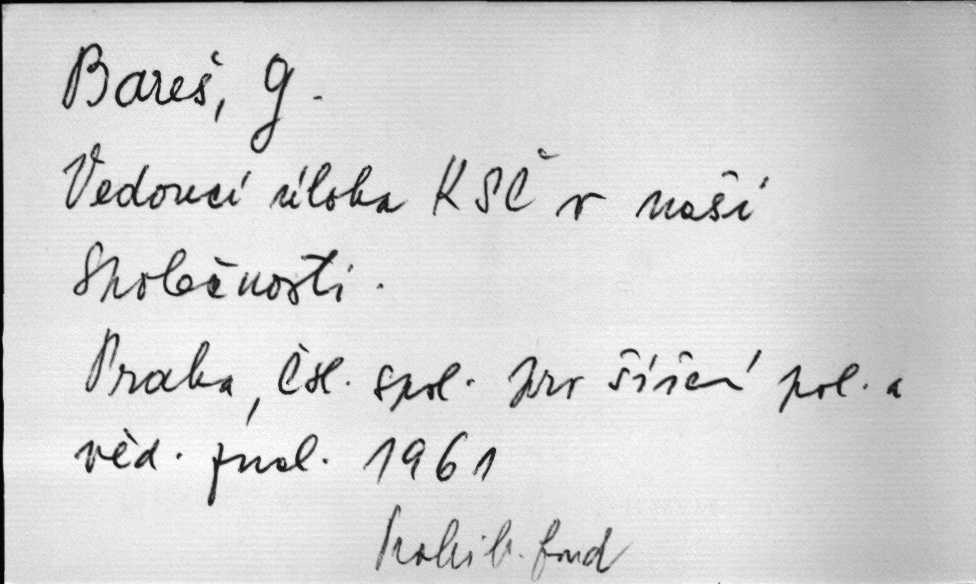 Bareš, G.
Vedoucí úloha KSČ v naší
společnosti.
Praha, Čsl. spol. pro šíření pol. a
věd. znal. 1961
Prohib. fond